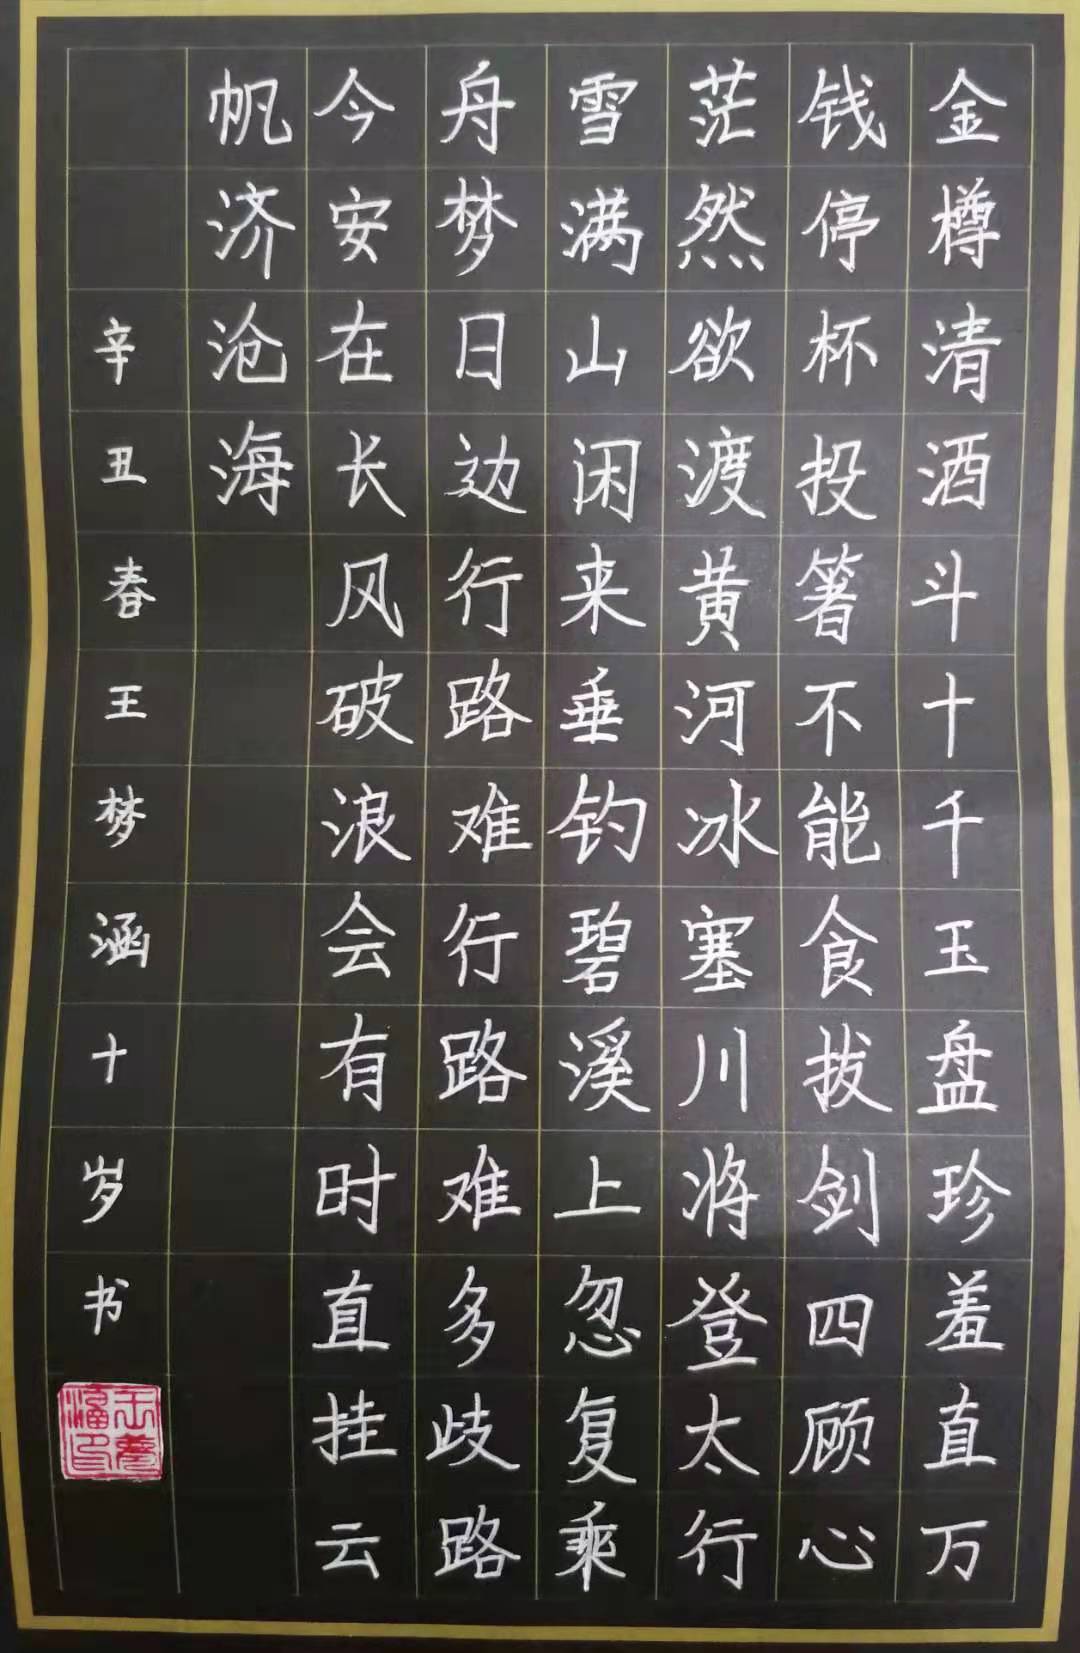 金樽清酒斗十千玉盘珍羞直万
钱停杯投箸不能食拔剑四顾心
茫然欲渡黄河冰塞川将登太行
雪满山闲来垂钓碧溪上忽复乘
舟梦日边行路难行路难多歧路
今安在长风破浪会有时直挂云
帆济沧海
辛丑春王梦涵十岁书
王梦涵印